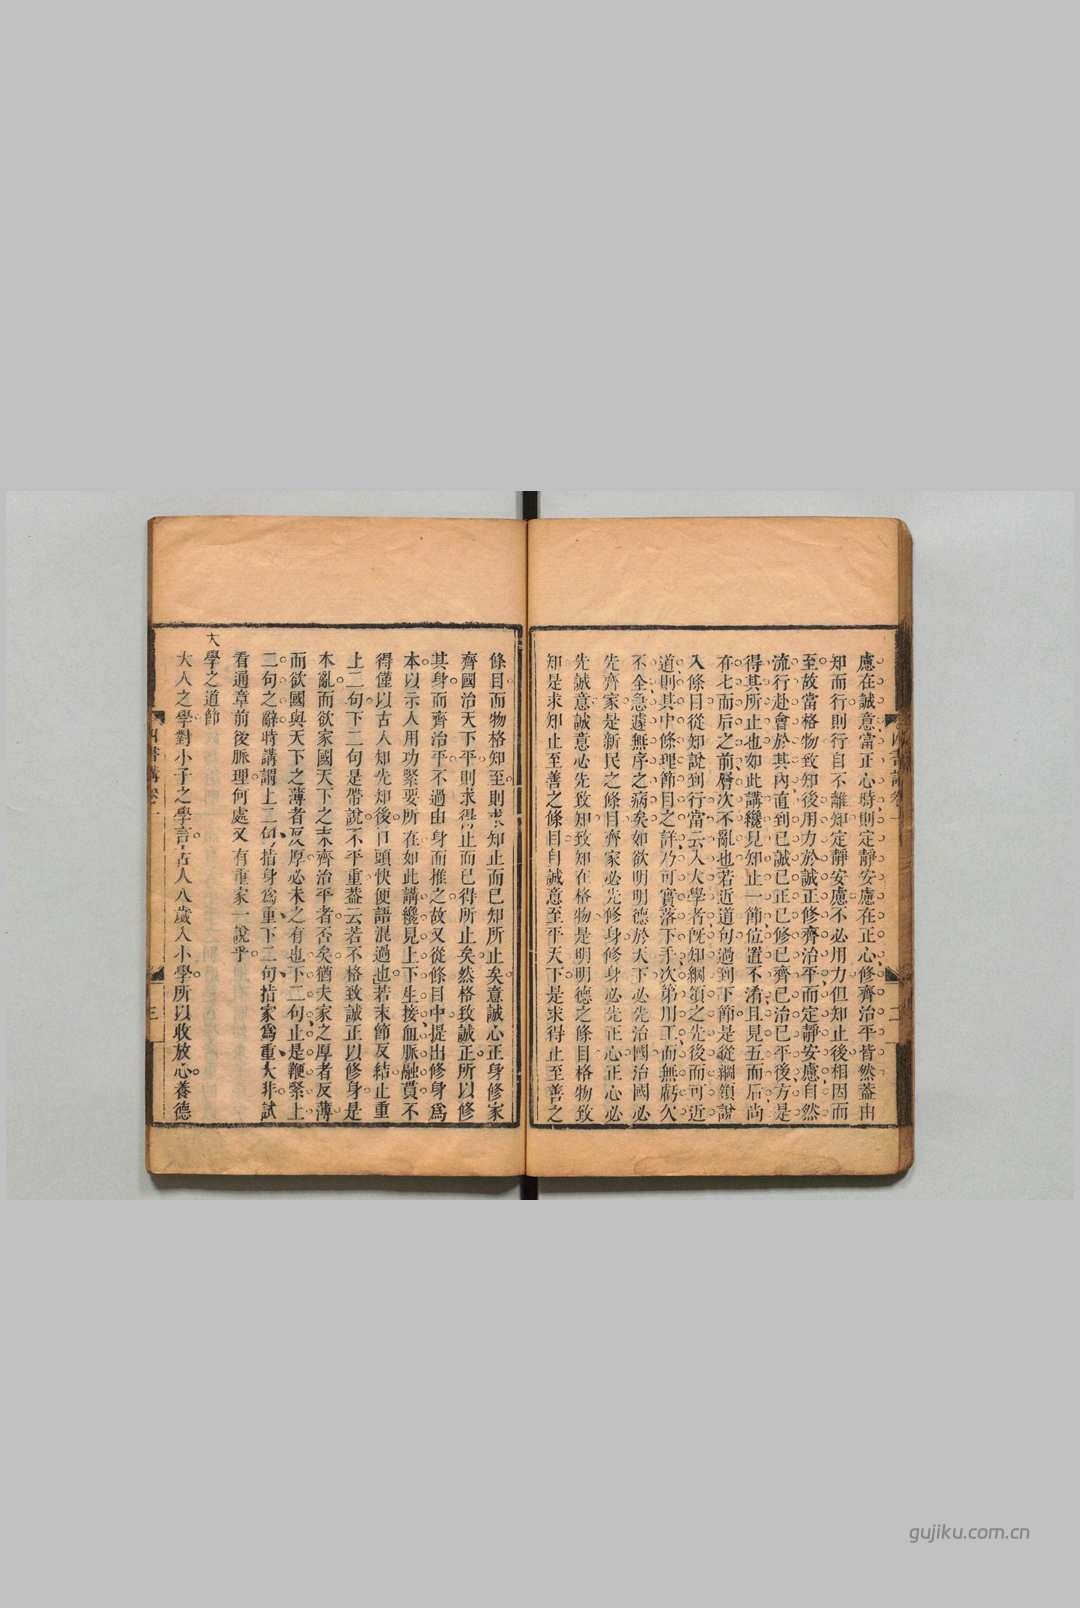 慮在誠意當正心時則定靜安慮在正心修齊治平皆然葢由
知而行則行自不離知定靜安慮不必用力但知止後相因而
至故當格物致知後用力於誠正修齊治平而定靜安慮自然
流行赴會於其內直到已誠已正已修已齊已治已平後方是
得其所止也如此講纔見知止一節位置不淆且見五而后尚
在七而后之前層次不亂也若近道句過到下節是從綱領說
入條目從知說到行當云入大學者旣知綱領之先後而可近
道則其中條理節目之詳乃可實落下手次第用工而無虧欠
不全急遽無序之病矣如欲明明德於天下必先治國治國必
先齊家是新民之條目齊家必先修身修身必先正心正心必
先誠意誠意必先致知致知在格物是明明德之條目格物致
知是求知止至善之條目自誠意至平天下是求得止至善之
條目而物格知至則求知止而已知所止矣意誠心正身修家
齊國治天下平則求得止而已得所止矣然格致誠正所以修
其身而齊治平不過由身而推之故又從條目中提出修身爲
本以示人用功緊要所在如此講纔見上下生接血脈融貫不
得僅以古人知先知後口頭快便語混過也若末節反結止重
上二句下二句是帶說不平重葢云若不格致誠正以修身是
本亂而欲家國天下之末齊治平者否矣猶夫家之厚者反薄
而欲國與天下之薄者反厚必未之有也下二句止是鞭緊上
二句之辭時講謂上二句指身爲重下二句指家爲重大非試
看通章前後脈理何處又有重家一說乎
大學之道節
大人之學對小子之學言古人八歲入小學所以收放心養德
四書講卷一
二
四書講卷一
三
gujiku.com.cn